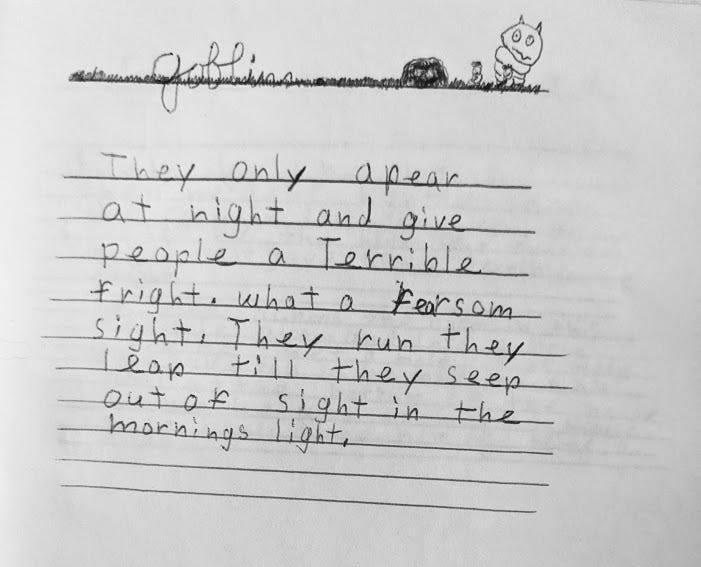 goblins
They only apear
at night and give
people a Terrible
fright. what a fearsom
sight. They run they
leap till they seep
out of sight in the
mornings light.